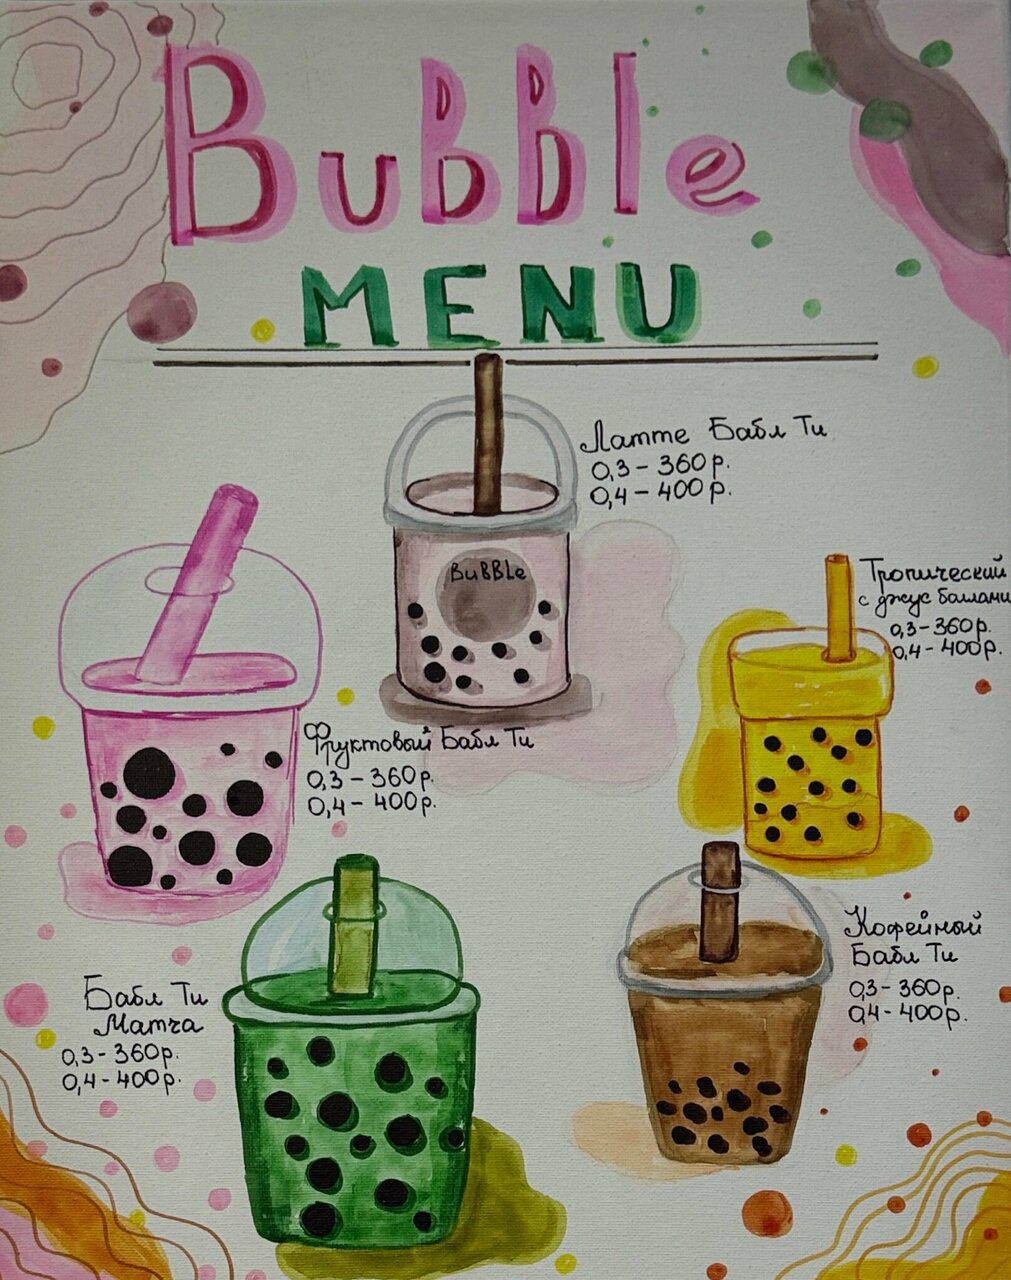 BuBBle
MENU
Латте Бабл Ти
0,3 - 360 р.
0,4 - 400 р.
BuBBLe
Тропический
с джус болами
0,3 - 360 р.
0,4 - 400 р.
Фруктовый Бабл Ти
0,3 - 360 р.
0,4 - 400 р.
Кофейный
Бабл Ти
0,3 - 360 р.
0,4 - 400 р.
Бабл Ти
Матча
0,3 - 360 р.
0,4 - 400 р.